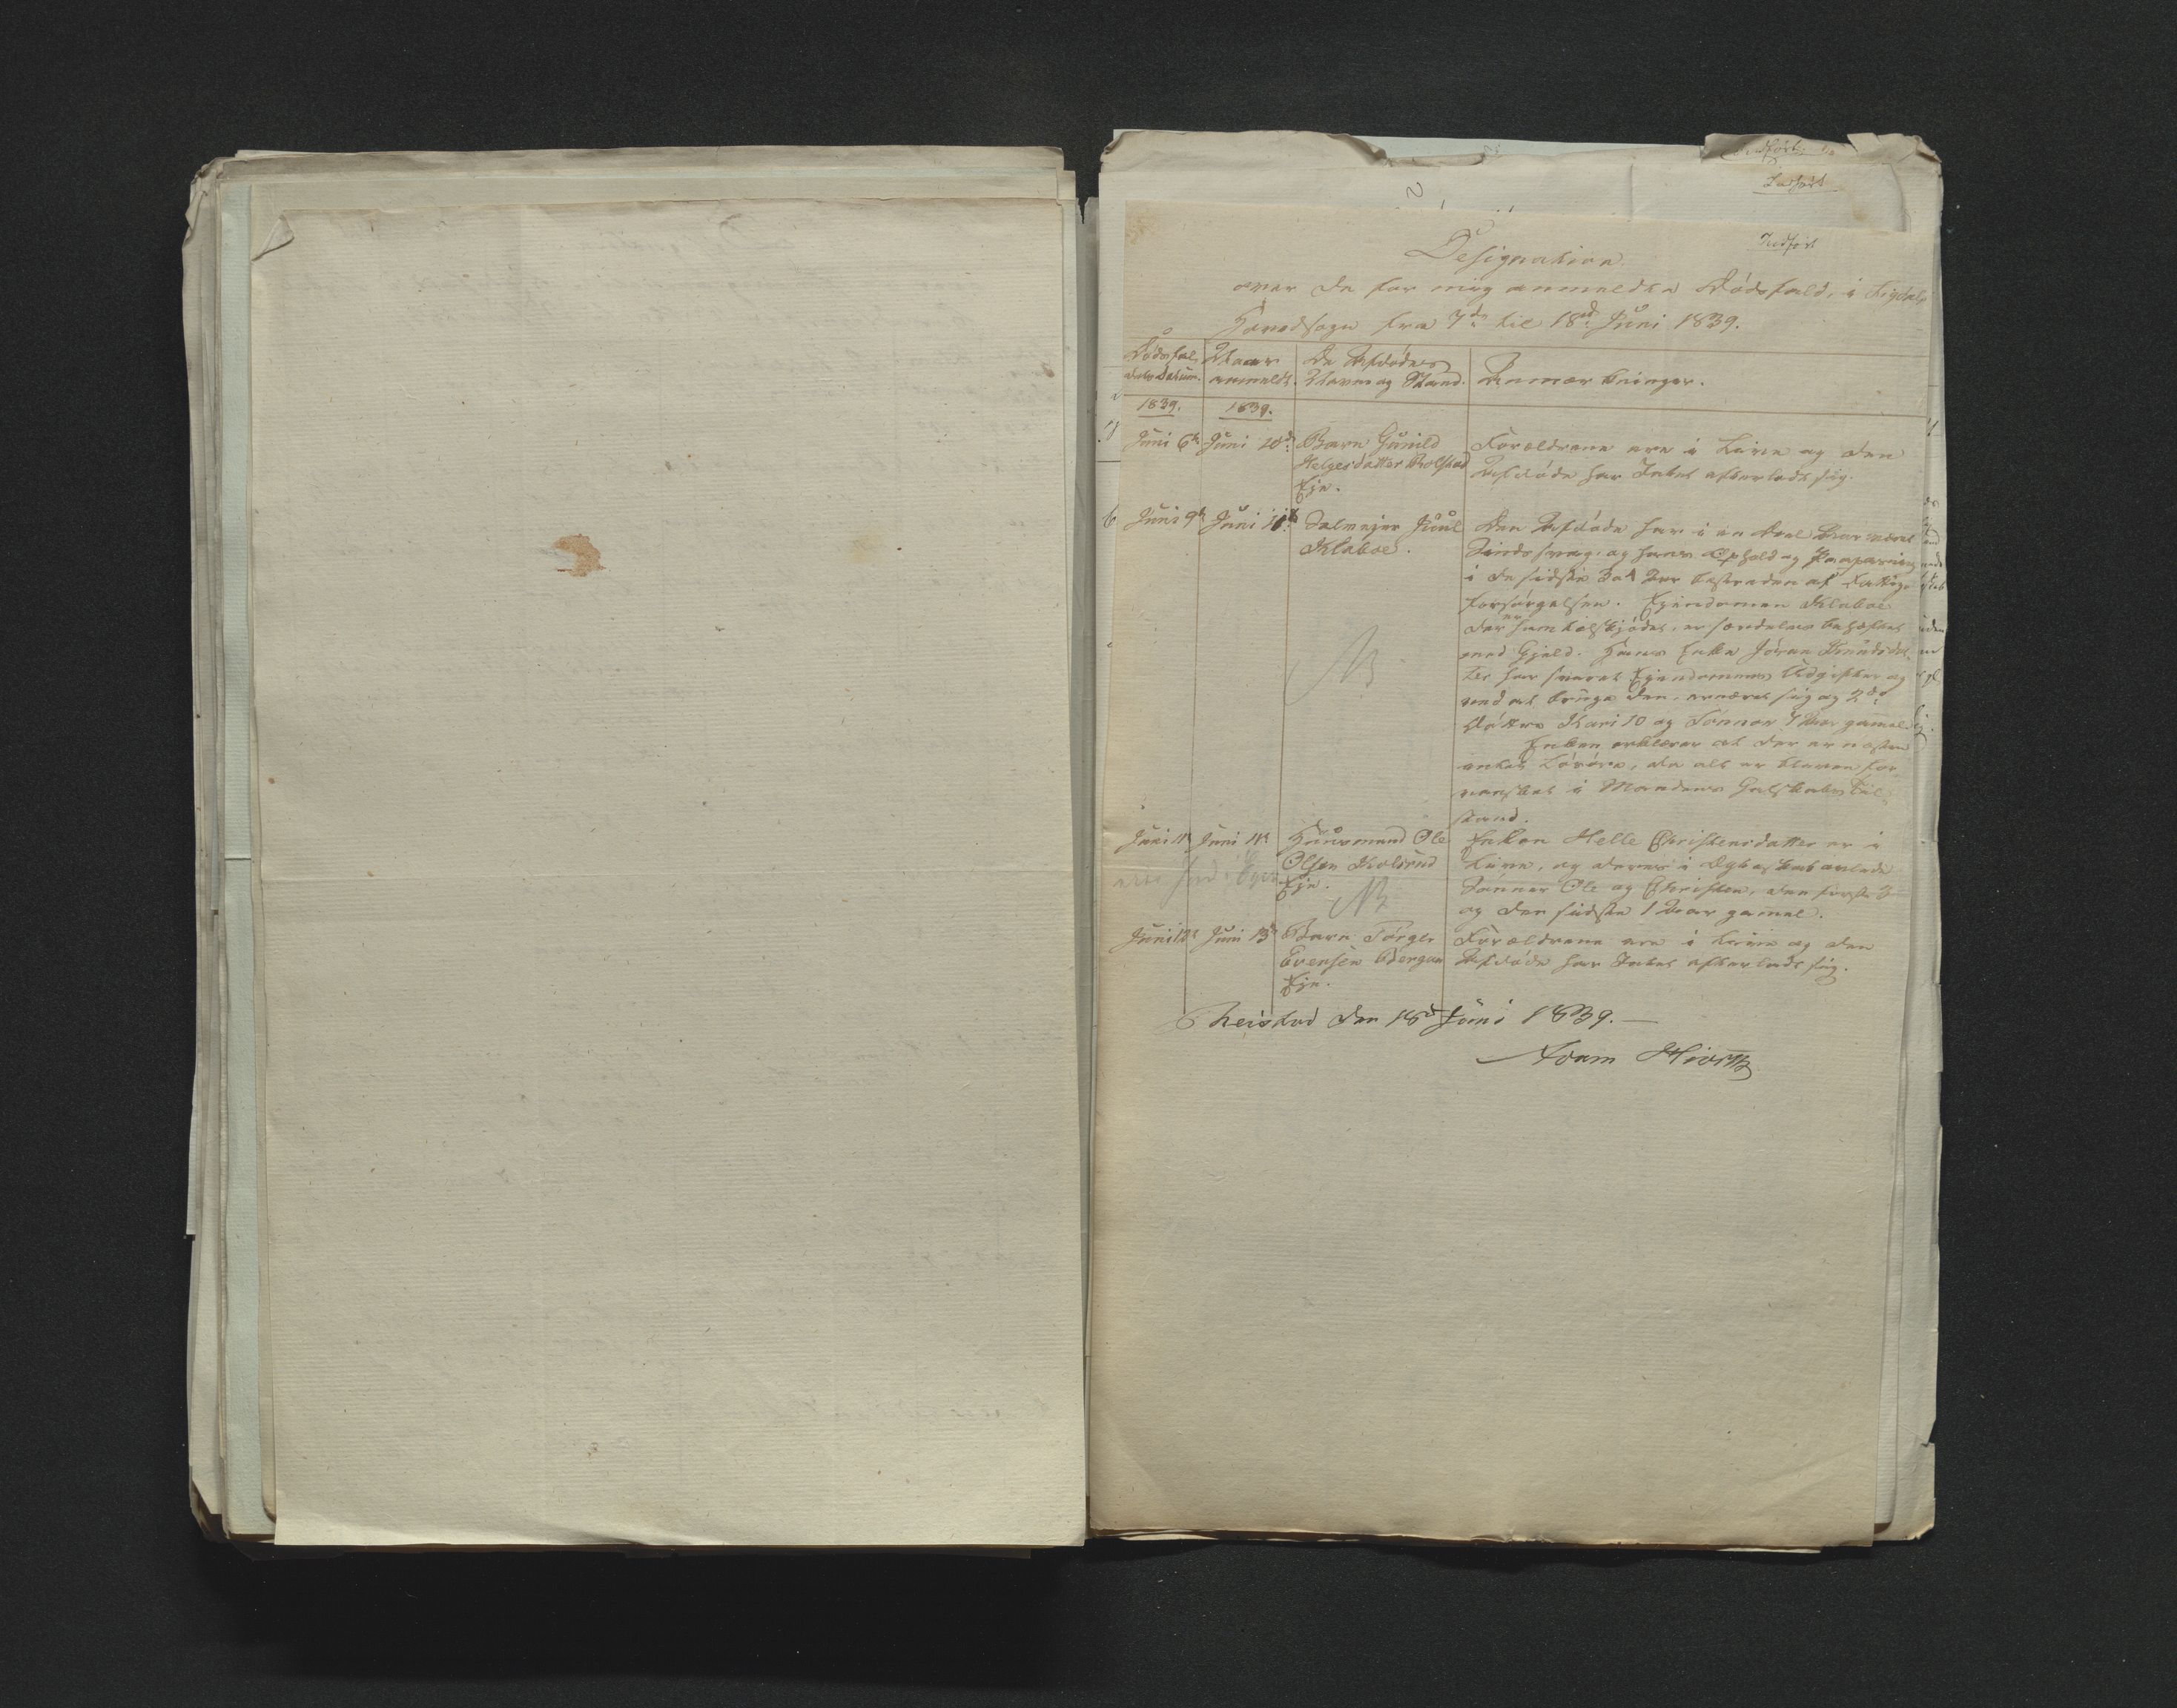 Indført
Designation
over de for mig anmeldte Dödsfald, i Sigdals
Hovedsogn fra 7de til 18de Juni 1839.
Dödsfal-
dets Datum.
Naar
anmeldt.
De Afdödes
Navn og Stand.
Anmærkninger.
1839.
1839.
Juni 6te
Juni 10de
Barn Gunild
Helgesdatter Bolstad
Eje.
Forældrene ere i Live og den
Afdöde har Intet efterladt sig.
Juni 9de
Juni 11te
Selvejer Juul
Klaboe.
Den Afdöde har i en deel Aar været
Sindssvag, og hans Ophold og
i de sidste 3 a 4 Aar bestreden af Fattig-
forsörgelsen. Ejendomen Klaboe
der er ham tilskjödet, er særdeles behæftet
med Gjeld. Hans Enke Jöran Knudsdat-
ter har svaret Ejendommens Udgifter og
ved at bruge den, ernæret sig og 2de
Döttre Kari 10 og Tönnor 7 Aar gamel.
Enken erklærer at der er næsten
intet Lösöre, da alt er bleven for-
vansket i Mandens Galskabs Til-
stand.
NB
Juni 11te
Juni 11te
Huusmand Ole
Olsen Kolsrud
Eje.
NB
Enken Helle Christensdatter er i
Live, og deres i Ægteskab avlede
Sönner Ole og Christen, den förste 3
og den sidste 1 Aar gamel.
Juni 12te
Juni 13de
Barn Torger
Evensen Bdergan
Eje.
Forældrene ere i Live og den
Afdöde har Intet efterladt sig.
Reistad den 18de Juni 1839.
Adam Hiorth